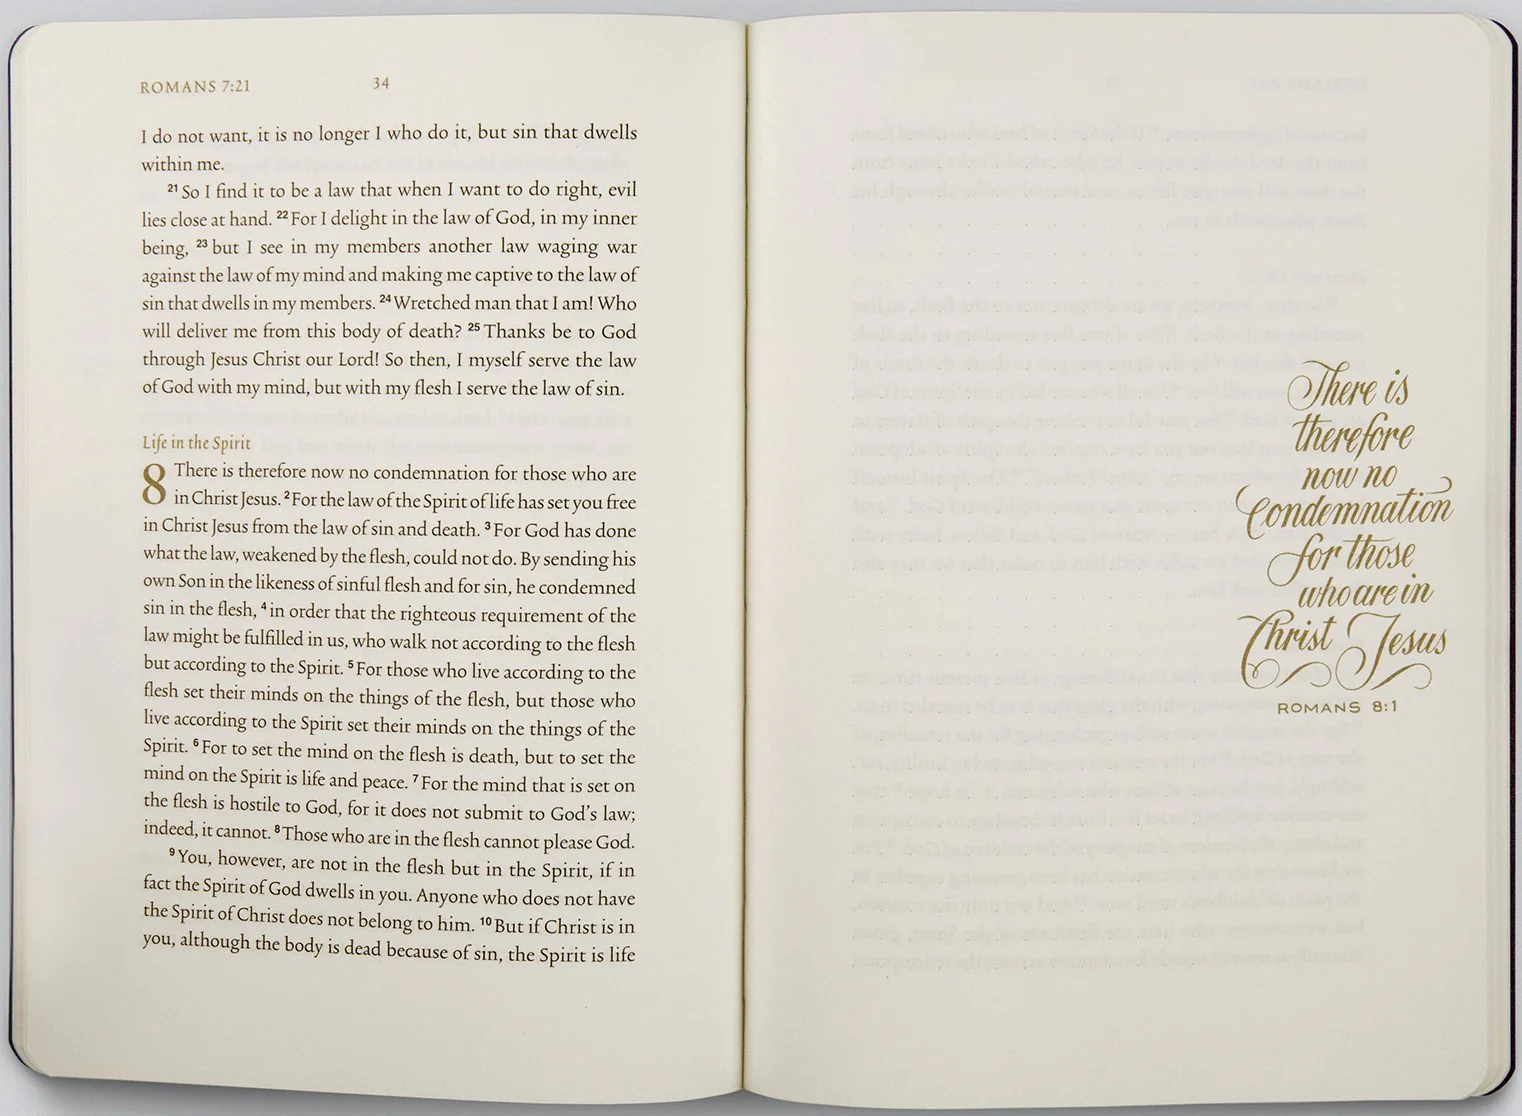 ROMANS 7:21 34
I do not want, it is no longer I who do it, but sin that dwells
within me.
21 So I find it to be a law that when I want to do right, evil
lies close at hand. 22 For I delight in the law of God, in my inner
being, 23 but I see in my members another law waging war
against the law of my mind and making me captive to the law of
sin that dwells in my members. 24 Wretched man that I am! Who
will deliver me from this body of death? 25 Thanks be to God
through Jesus Christ our Lord! So then, I myself serve the law
of God with my mind, but with my flesh I serve the law of sin.
Life in the Spirit
8 There is therefore now no condemnation for those who are
in Christ Jesus. 2 For the law of the Spirit of life has set you free
in Christ Jesus from the law of sin and death. 3 For God has done
what the law, weakened by the flesh, could not do. By sending his
own Son in the likeness of sinful flesh and for sin, he condemned
sin in the flesh, 4 in order that the righteous requirement of the
law might be fulfilled in us, who walk not according to the flesh
but according to the Spirit. 5 For those who live according to the
flesh set their minds on the things of the flesh, but those who
live according to the Spirit set their minds on the things of the
Spirit. 6 For to set the mind on the flesh is death, but to set the
mind on the Spirit is life and peace. 7 For the mind that is set on
the flesh is hostile to God, for it does not submit to God's law;
indeed, it cannot. 8 Those who are in the flesh cannot please God.
9 You, however, are not in the flesh but in the Spirit, if in
fact the Spirit of God dwells in you. Anyone who does not have
the Spirit of Christ does not belong to him. 10 But if Christ is in
you, although the body is dead because of sin, the Spirit is life
There is
therefore
now no
Condemnation
for those
who are in
Christ Jesus
ROMANS 8:1